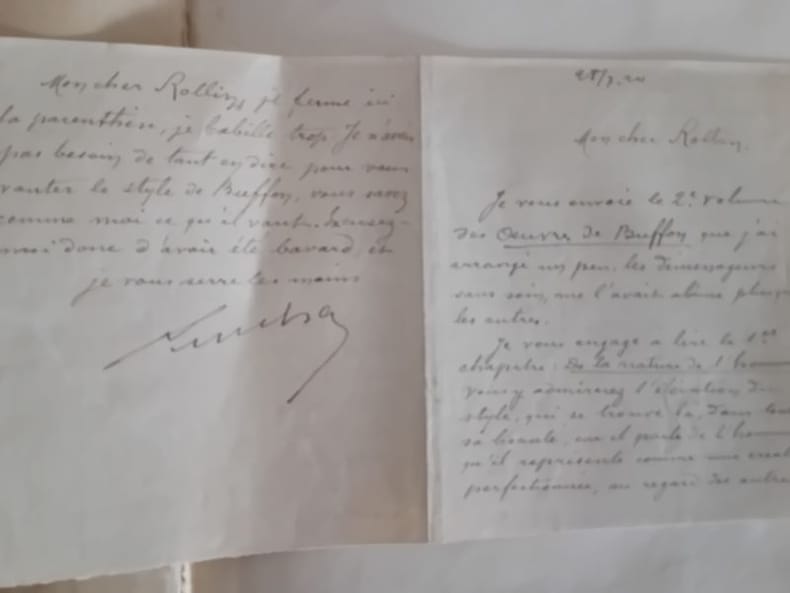 Mon cher Rollin, je ferme ici
la parenthèse, je babille trop. Je n'avais
pas besoin de tant en dire pour vous
vanter le style de Buffon, vous savez
comme moi ce qu'il vaut. Excusez-
moi donc d'avoir été bavard, et
je vous serre les mains
Mon cher Rollin,
Je vous envoie le 2e volume
des Œuvres de Buffon que j'ai
arrangé un peu, les déménageurs
sans soin, me l'avait abîmé plus
les autres.
Je vous engage a lire le 1er
chapitre : De la nature de l'homme
vous y admirerez l'élévation du
style, qui se trouve là, dans
sa beauté, car il parle de l'homme
qu'il représente comme une
perfectionnée, au regard des autres